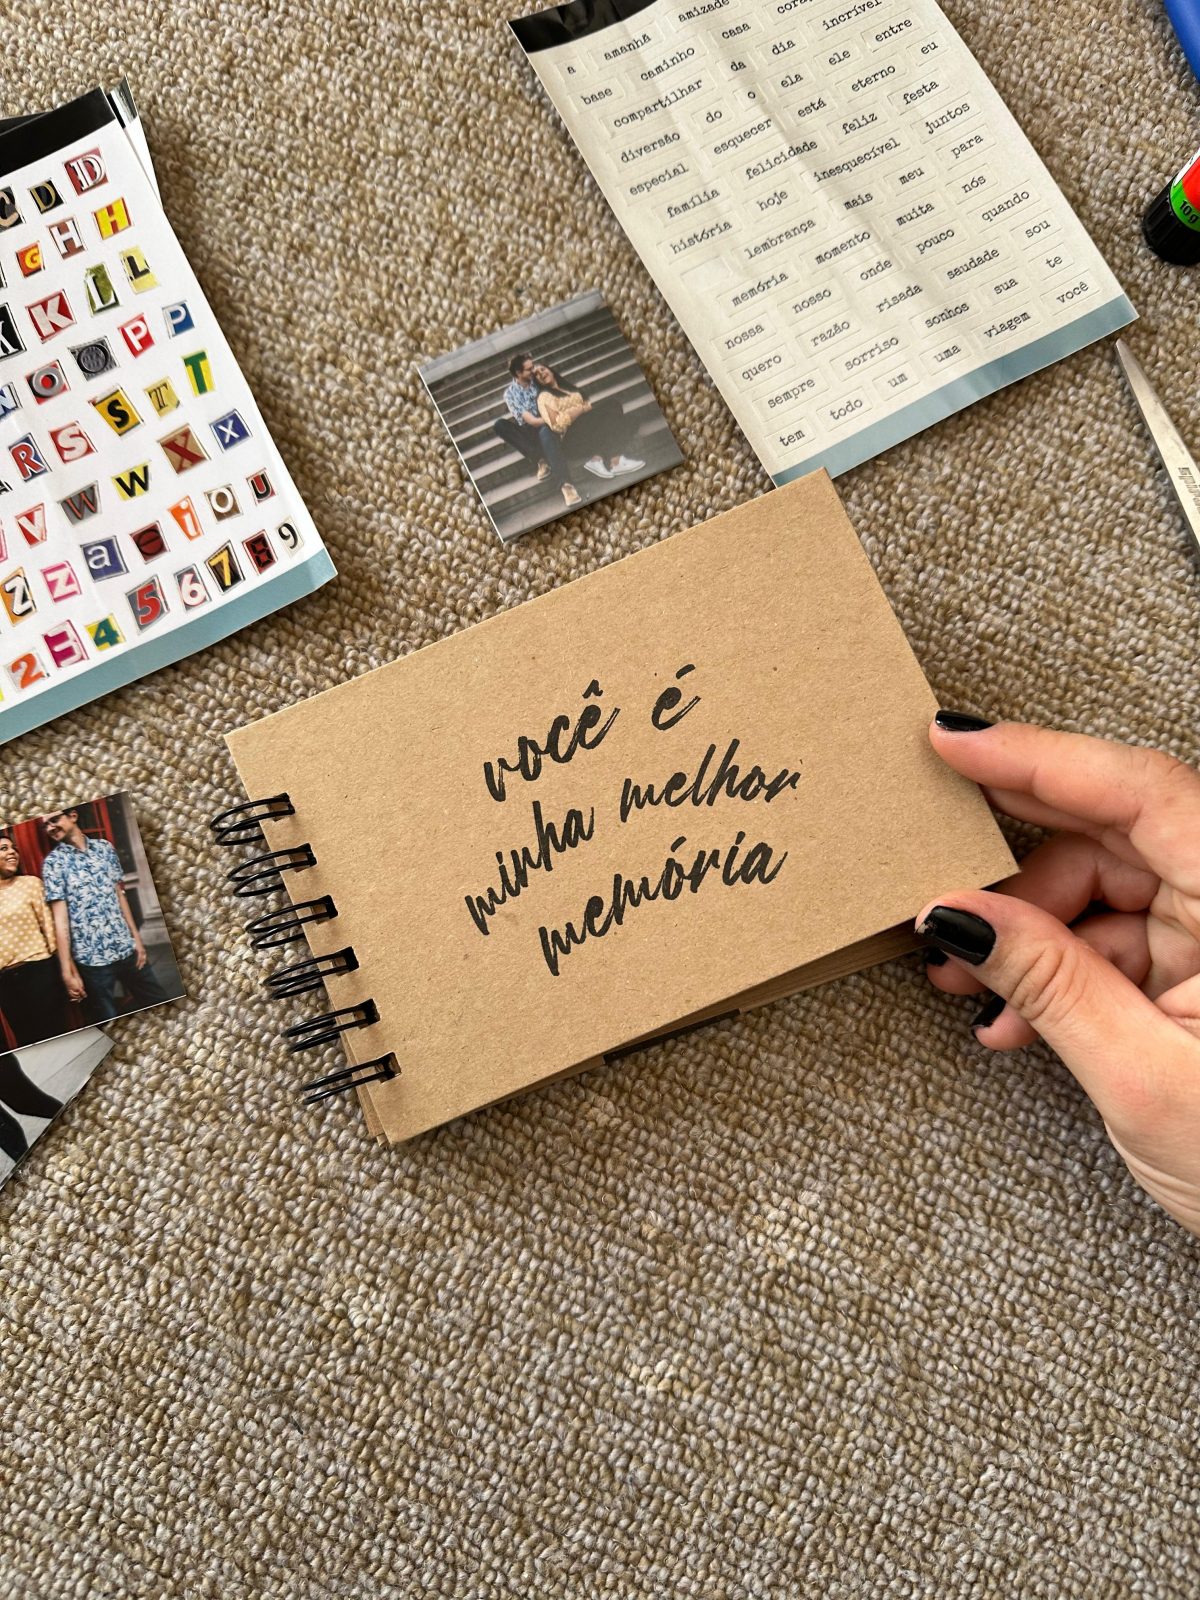 a amanhã amizade
base caminho casa
compartilhar da dia incrível
diversão do o ela ele entre
especial esquecer está eterno eu
família felicidade feliz festa
história hoje inesquecível juntos
lembrança mais meu para
memória momento muita nós
nossa nosso onde pouco quando
quero razão risada saudade sou
sempre sorriso sonhos sua te
tem todo um uma viagem você
D D
G H H
K K L L
O O P P
R S S T T
V W W X X
Z z a e i o u
2 3 4 5 6 7 8 9
você é
minha melhor
memória
10 g